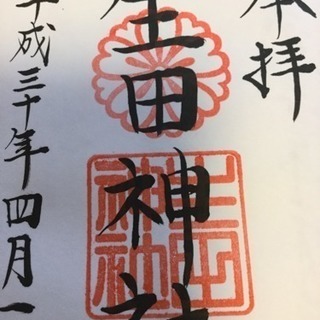 奉拝
生田神社
生田神社
平成三十年四月一